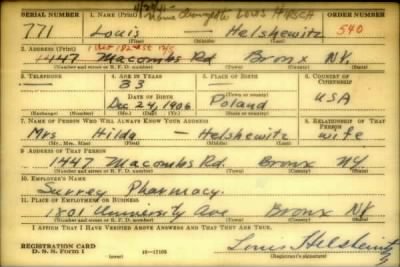 Name changed to LOUIS HIRSCH
SERIAL NUMBER 1. NAME (Print) ORDER NUMBER
771 Louis — Helshewitz 540
(First) (Middle) (Last)
2. ADDRESS (Print)
1447 Macombs Rd Bronx NY.
(Number and street or R. F. D. number) (Town) (County) (State)
3. TELEPHONE 4. AGE IN YEARS 5. PLACE OF BIRTH 6. COUNTRY OF CITIZENSHIP
— 33 —
DATE OF BIRTH (Town or county)
Dec 24, 1906 Poland USA
(Mo.) (Day) (Yr.) (State or country)
7. NAME OF PERSON WHO WILL ALWAYS KNOW YOUR ADDRESS 8. RELATIONSHIP OF THAT PERSON
Mrs Hilda — Helshewitz wife
(Mr., Mrs., Miss) (First) (Middle) (Last)
9. ADDRESS OF THAT PERSON
1447 Macombs Rd. Bronx NY
(Number and street or R. F. D. number) (Town) (County) (State)
10. EMPLOYER'S NAME
Surrey Pharmacy.
11. PLACE OF EMPLOYMENT OR BUSINESS
1801 University Ave Bronx NY
(Number and street or R. F. D. number) (Town) (County) (State)
I AFFIRM THAT I HAVE VERIFIED ABOVE ANSWERS AND THAT THEY ARE TRUE.
REGISTRATION CARD
D. S. S. FORM 1 16—17105 Louis Helshewitz
(Registrant's signature)